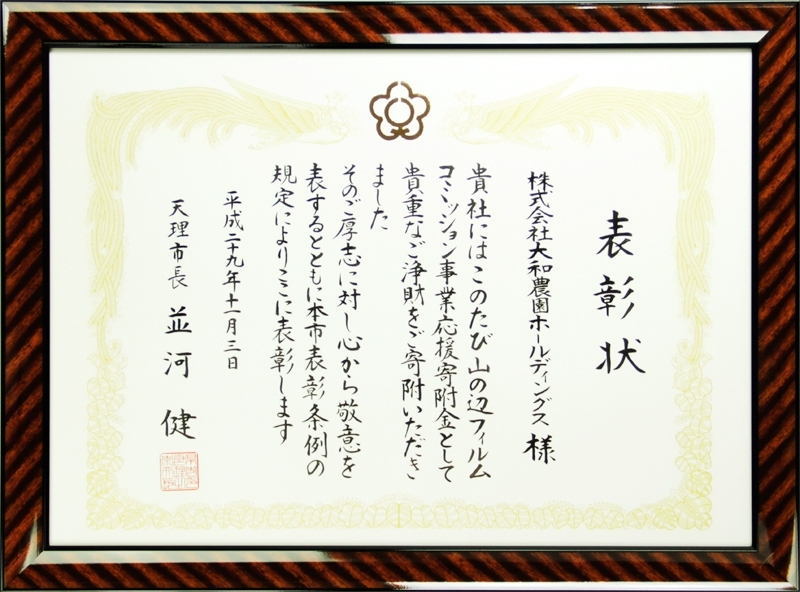 表彰状
株式会社大和農園ホールディングス 様
貴社にはこのたび山の辺フィルム
コミッション事業応援寄附金として
貴重なご浄財をご寄附いただき
ました
そのご厚志に対し心から敬意を
表するとともに本市表彰条例の
規定によりここに表彰します
平成二十九年十一月三日
天理市長 並河 健